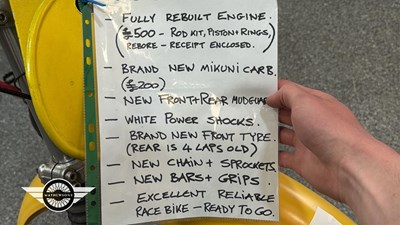 — FULLY REBUILT ENGINE.
(£500 - ROD KIT, PISTON+RINGS,
REBORE - RECEIPT ENCLOSED.)
— BRAND NEW MIKUNI CARB.
(£200)
— NEW FRONT+REAR MUDGUAR
— WHITE POWER SHOCKS.
— BRAND NEW FRONT TYRE.
(REAR IS 4 LAPS OLD)
— NEW CHAIN + SPROCKETS
— NEW BARS + GRIPS.
— EXCELLENT RELIABLE
RACE BIKE — READY TO GO.
MATHEWSONS